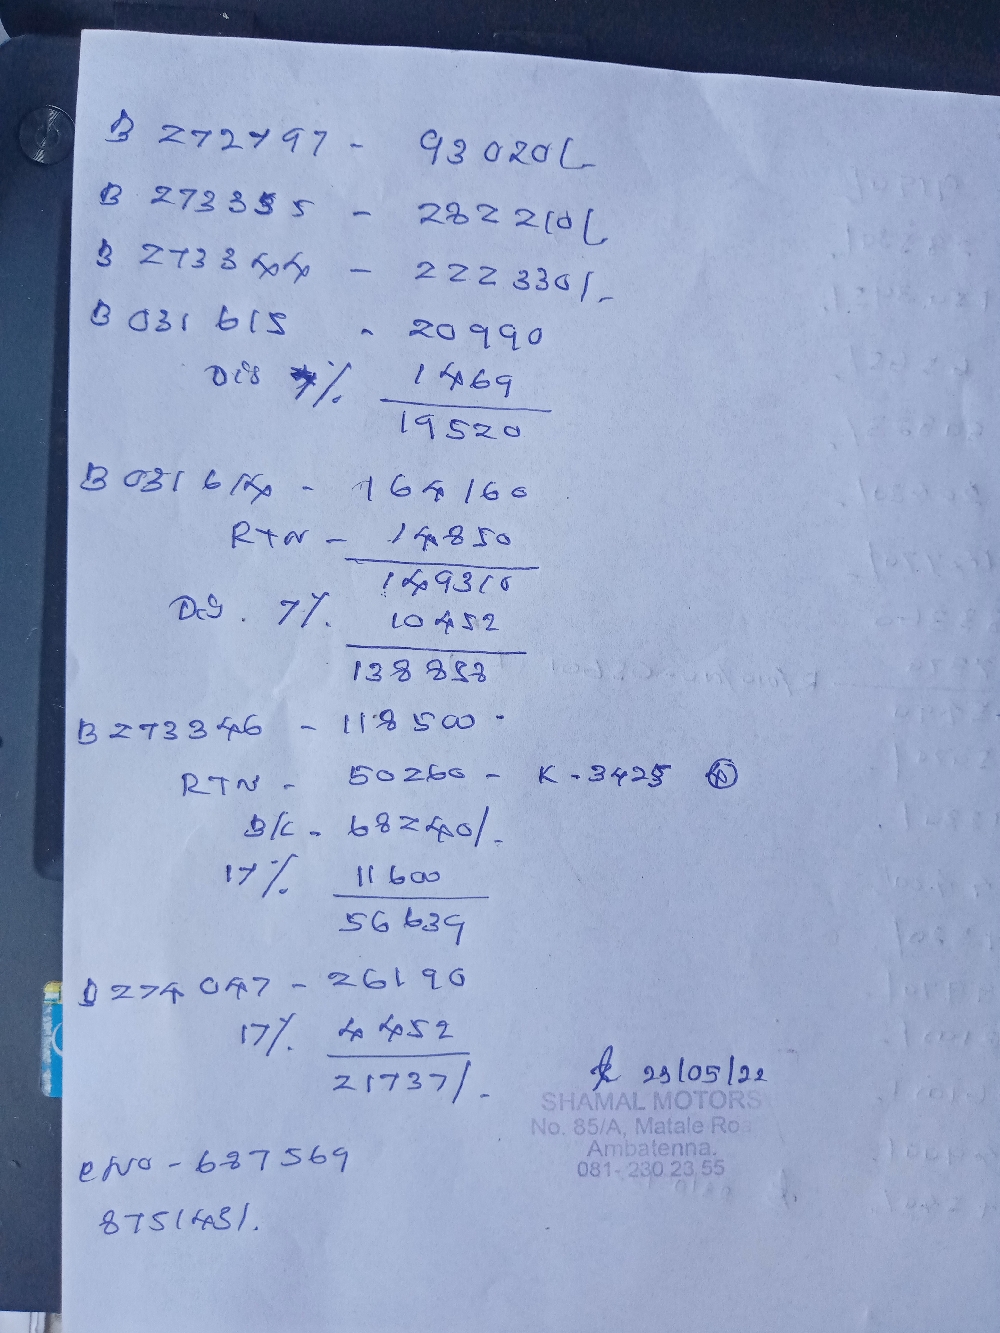 B 272797 - 93020/-
B 273355 - 282210/-
B 273344 - 222330/-
B 031615 - 20990
Dis 7%. 1469
19520
B 031614 - 164160
RTN - 14850
149310
Dis. 7%. 10452
138858
B 273346 - 118500 -
RTN - 50260 - K-3425
B/C - 68240/-
17%. 11600
56639
B 274047 - 26190
17%. 4452
21737/-
23/05/22
SHAMAL MOTORS
No. 85/A, Matale Roa
Ambatenna.
081- 230 23 55
C No - 687569
875143/.